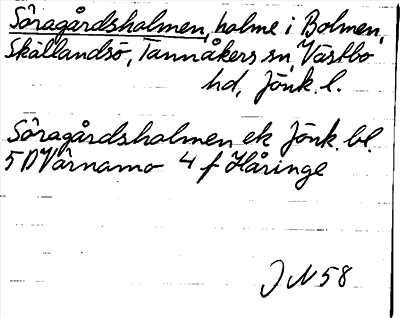 Söragårdsholmen, holme i Bolmen,
Skällandsö, Tannåkers sn, Västbo
hd, Jönk. l.
Söragårdsholmen ek Jönk. bl.
5 D Värnamo 4 f Håringe
J N 58